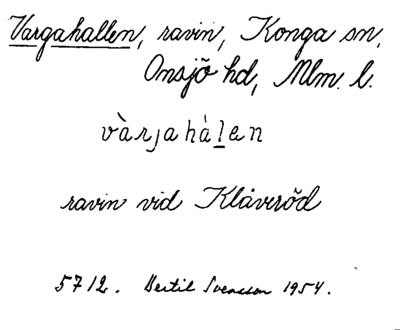 Vargahallen, ravin, Konga sn,
Onsjö hd, Mlm. l.
vàrjahàlen
ravin vid Klåveröd
5712. Bertil Svensson 1954.